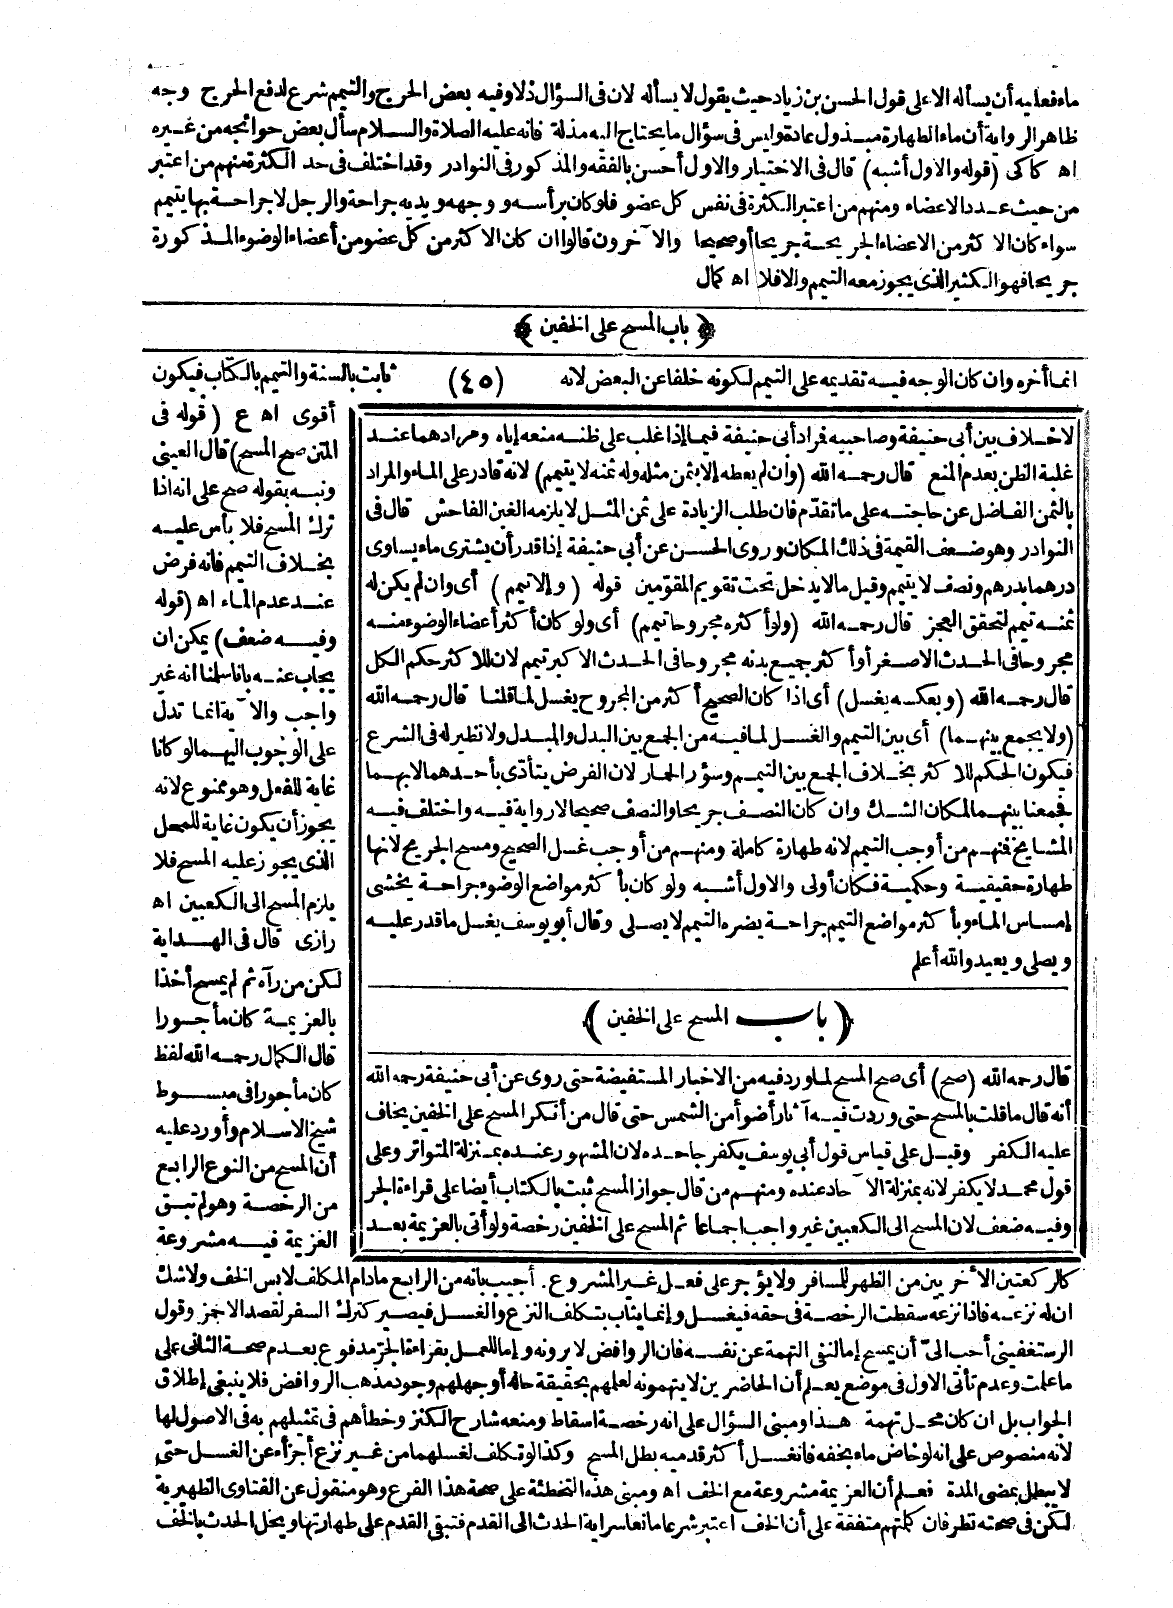 ماء فعليه أن يسأله الا على قول الحسن بن زياد حيث يقول لا يسأله لان فى السؤال ذلا وفيه بعض الحرج والتيمم شرع لدفع الحرج وجه
ظاهر الرواية أن ماء الطهارة مبذول عادة وليس فى سؤال ما يحتاج اليه مذلة فانه عليه الصلاة والسلام سأل بعض حوائجه من غيره
اه كاكى (قوله والاول أشبه) قال فى الاختيار والاول أحسن بالفقه والمذكور فى النوادر وقد اختلف فى حد الكثرة منهم من اعتبر
من حيث عدد الاعضاء ومنهم من اعتبر الكثرة فى نفس كل عضو فلو كان برأسه ووجهه ويديه جراحة والرجل لا جراحة بها يتيمم
سواء كان الاكثر من الاعضاء الجريحة جريحا أو صحيحا والآخرون قالوا ان كان الاكثر من كل عضو من أعضاء الوضوء المذكورة
جريحا فهو الكثير الذى يجوز معه التيمم والا فلا اه كمال
﴿باب المسح على الخفين﴾
انما أخره وان كان الوجه فيه تقديمه على التيمم لكونه خلفا عن البعض لانه (٤٥) ثابت بالسنة والتيمم بالكتاب فيكون
أقوى اه ع (قوله فى
المتن صح المسح) قال العينى
ونبه بقوله صح على انه اذا
ترك المسح فلا بأس عليه
بخلاف التيمم فانه فرض
عند عدم الماء اه (قوله
وفيه ضعف) يمكن ان
يجاب عنه بانا سلمنا انه غير
واجب والآية انما تدل
على الوجوب اليهما لو كانا
غاية للفعل وهو ممنوع لانه
يجوز أن يكون غاية للمحل
الذى يجوز عليه المسح فلا
يلزم المسح الى الكعبين اه
رازى قال فى الهداية
لكن من رآه ثم لم يمسح أخذا
بالعزيمة كان مأجورا
قال الكمال رحمه الله لفظ
كان مأجورا فى مبسوط
شيخ الاسلام وأورد عليه
أن المسح من النوع الرابع
من الرخصة وهو لم تبق
العزيمة فيه مشروعة
لا خلاف بين أبى حنيفة وصاحبيه فراد أبى حنيفة فيما إذا غلب على ظنه منعه إياه ومرادهما عند
غلبة الظن بعدم المنع قال رحمه الله (وان لم يعطه إلا بثمن مثله وله ثمنه لا يتيمم) لانه قادر على الماء والمراد
بالثمن الفاضل عن حاجته على ما تقدّم فان طلب الزيادة على ثمن المثل لا يلزمه الغبن الفاحش قال فى
النوادر وهو ضعف القيمة فى ذلك المكان وروى الحسن عن أبى حنيفة إذا قدر أن يشترى ماء يساوى
درهما بدرهم ونصف لا يتيمم وقيل ما لا يدخل تحت تقويم المقوّمين قوله (وإلا تيمم) أى وان لم يكن له
ثمنه تيمم لتحقق العجز قال رحمه الله (ولو أكثره مجروحا تيمم) أى ولو كان أكثر أعضاء الوضوء منه
مجروحا فى الحدث الاصغر أو أكثر جميع بدنه مجروحا فى الحدث الاكبر تيمم لان للاكثر حكم الكل
قال رحمه الله (وبعكسه يغسل) أى اذا كان الصحيح أكثر من المجروح يغسل لما قلنا قال رحمه الله
(ولا يجمع بينهما) أى بين التيمم والغسل لما فيه من الجمع بين البدل والمبدل ولا نظير له فى الشرع
فيكون الحكم للاكثر بخلاف الجمع بين التيمم وسؤر الحمار لان الفرض يتأدّى بأحدهما لا بهما
فجمعنا بينهما لمكان الشك وان كان النصف جريحا والنصف صحيحا لا رواية فيه واختلف فيه
المشايخ فمنهم من أوجب التيمم لانه طهارة كاملة ومنهم من أوجب غسل الصحيح ومسح الجريح لانها
طهارة حقيقية وحكمية فكان أولى والاول أشبه ولو كان بأكثر مواضع الوضوء جراحة يخشى
إمساس الماء وبأكثر مواضع التيمم جراحة يضره التيمم لا يصلى وقال أبو يوسف يغسل ما قدر عليه
ويصلى ويعيد والله أعلم
(باب المسح على الخفين)
قال رحمه الله (صح) أى صح المسح لما ورد فيه من الاخبار المستفيضة حتى روى عن أبى حنيفة رحمه الله
أنه قال ما قلت بالمسح حتى وردت فيه آثار أضوأ من الشمس حتى قال من أنكر المسح على الخفين يخاف
عليه الكفر وقيل على قياس قول أبى يوسف يكفر جاحده لان المشهور عنده بمنزلة المتواتر وعلى
قول محمد لا يكفر لانه بمنزلة الآحاد عنده ومنهم من قال جواز المسح ثبت بالكتاب أيضا على قراءة الجر
وفيه ضعف لان المسح الى الكعبين غير واجب اجماعا ثم المسح على الخفين رخصة ولو أتى بالعزيمة بعد
كالركعتين الأخريين من الظهر للمسافر ولا يؤجر على فعل غير المشروع. أجيب بانه من الرابع مادام المكلف لابس الخف ولا شك
ان له نزعه فاذا نزعه سقطت الرخصة فى حقه فيغسل وإنما يثاب بتكلف النزع والغسل فيصير كترك السفر لقصد الاجز وقول
الرستغفينى أحب الىّ أن يمسح إما لنفى التهمة عن نفسه فان الروافض لا يرونه وإما للعمل بقراءة الجرّ مدفوع بعدم صحة الثانى على
ما علمت وعدم تأتى الاول فى موضع يعلم أن الحاضرين لا يتهمونه لعلمهم بحقيقة حاله أو جهلهم وجود مذهب الروافض فلا ينبغى إطلاق
الجواب بل ان كان محل تهمة هذا ومبنى السؤال على انه رخصة اسقاط ومنعه شارح الكنز وخطأهم فى تمثيلهم به فى الاصول لها
لانه منصوص على انه لو خاض ماء بخفه فانغسل أكثر قدميه بطل المسح وكذا لو تكلف لغسلهما من غير نزع أجزأه عن الغسل حتى
لا يبطل بمضى المدة فعلم أن العزيمة مشروعة مع الخف اه ومبنى هذه التخطئة على صحة هذا الفرع وهو منقول عن الفتاوى الظهيرية
لكن فى صحته نظر فان كلمتهم متفقة على أن الخف اعتبر شرعا مانعا سراية الحدث الى القدم فتبقى القدم على طهارتها ويحل الحدث بالخف